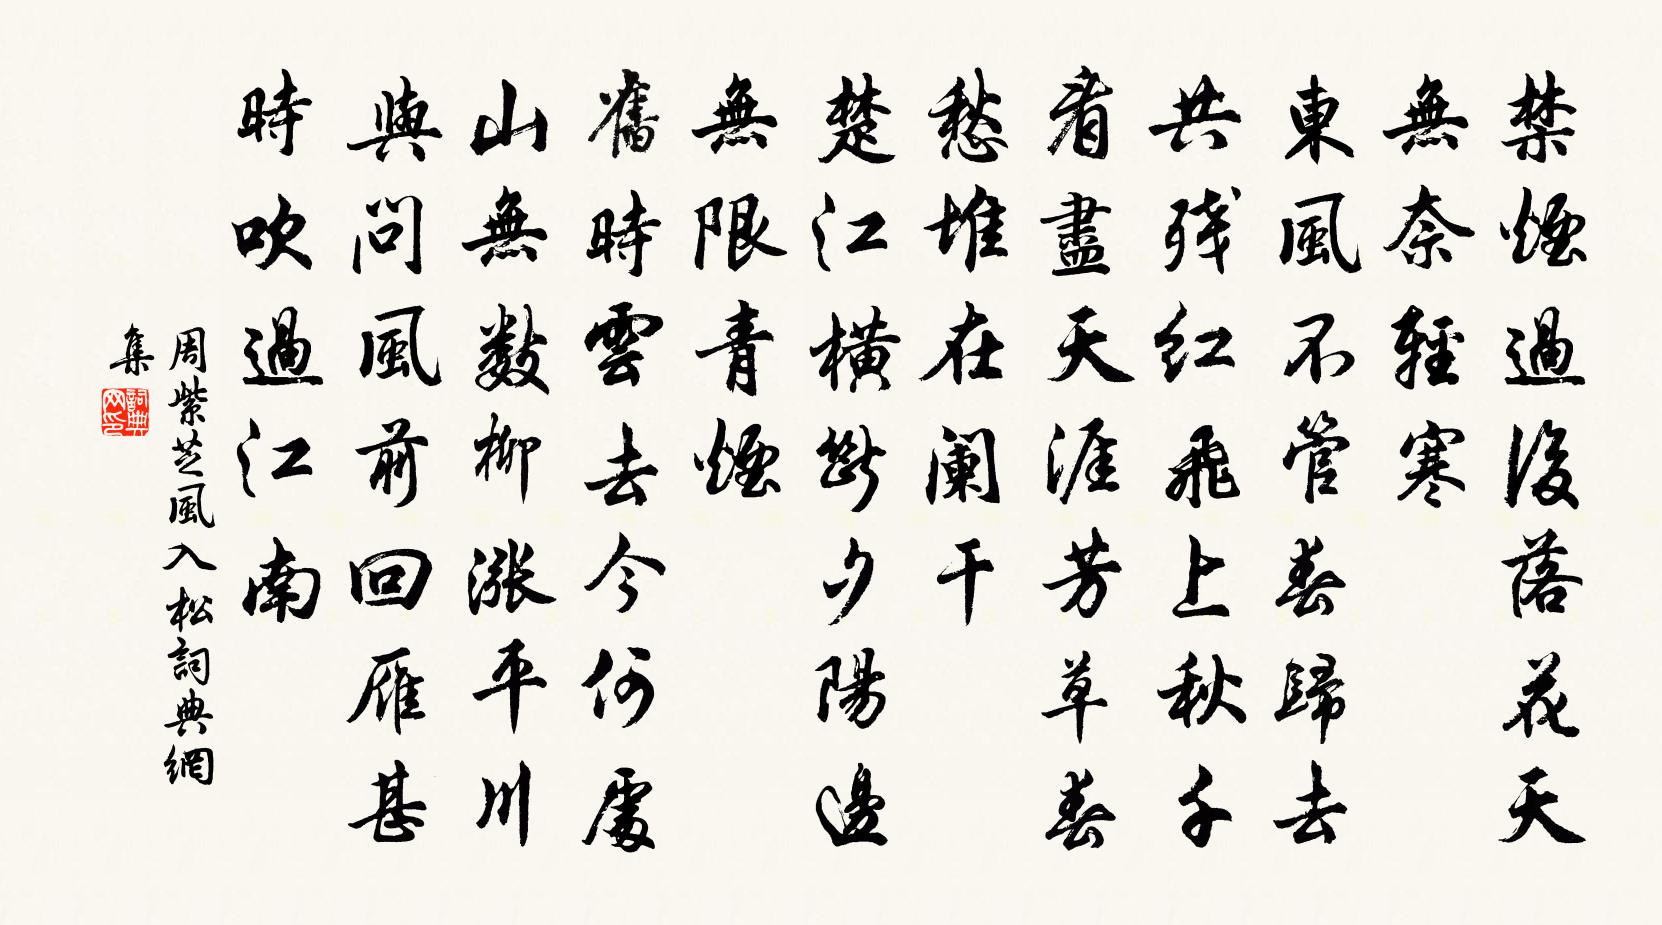 禁煙過後落花天
無奈輕寒
東風不管春歸去
共殘紅飛上秋千
看盡天涯芳草春
愁堆在闌干
楚江橫斷夕陽邊
無限青煙
舊時雲去今何處
山無數柳漲平川
與問風前回雁甚
時吹過江南
周紫芝風入松詞典網
集
詞典网印